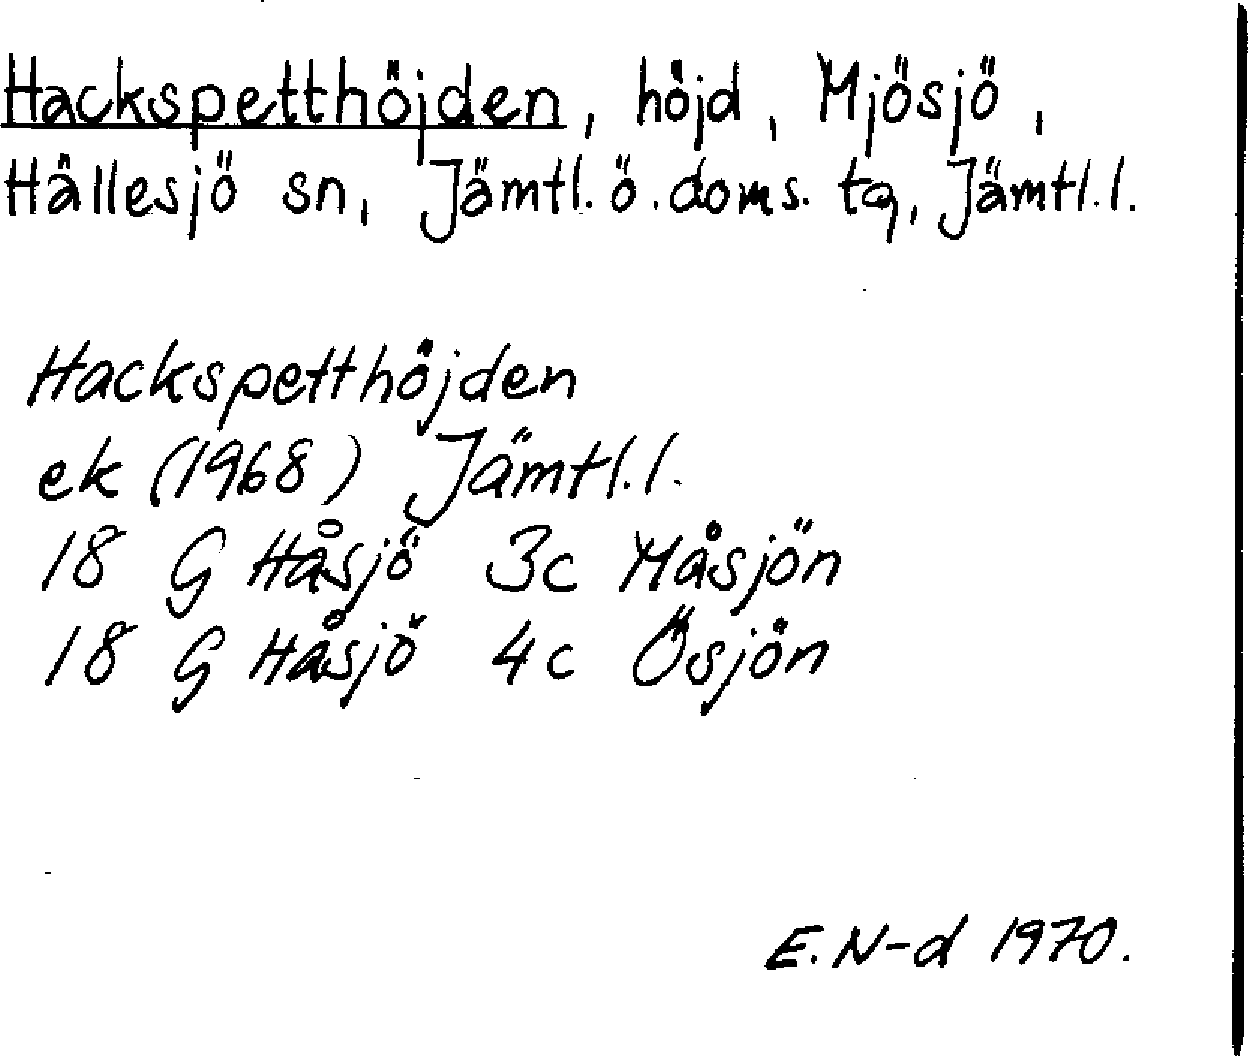 Hackspetthöjden, höjd, Mjösjö,
Hällesjö sn, Jämtl. ö. doms. tg, Jämtl. l.
Hackspetthöjden
ek (1968) Jämtl. l.
18 G Håsjö 3c Måsjön
18 G Håsjö 4c Ösjön
E. N-d 1970.